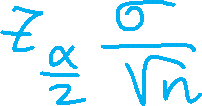 z_{\frac{\alpha}{2}} \frac{\sigma}{\sqrt{n}}